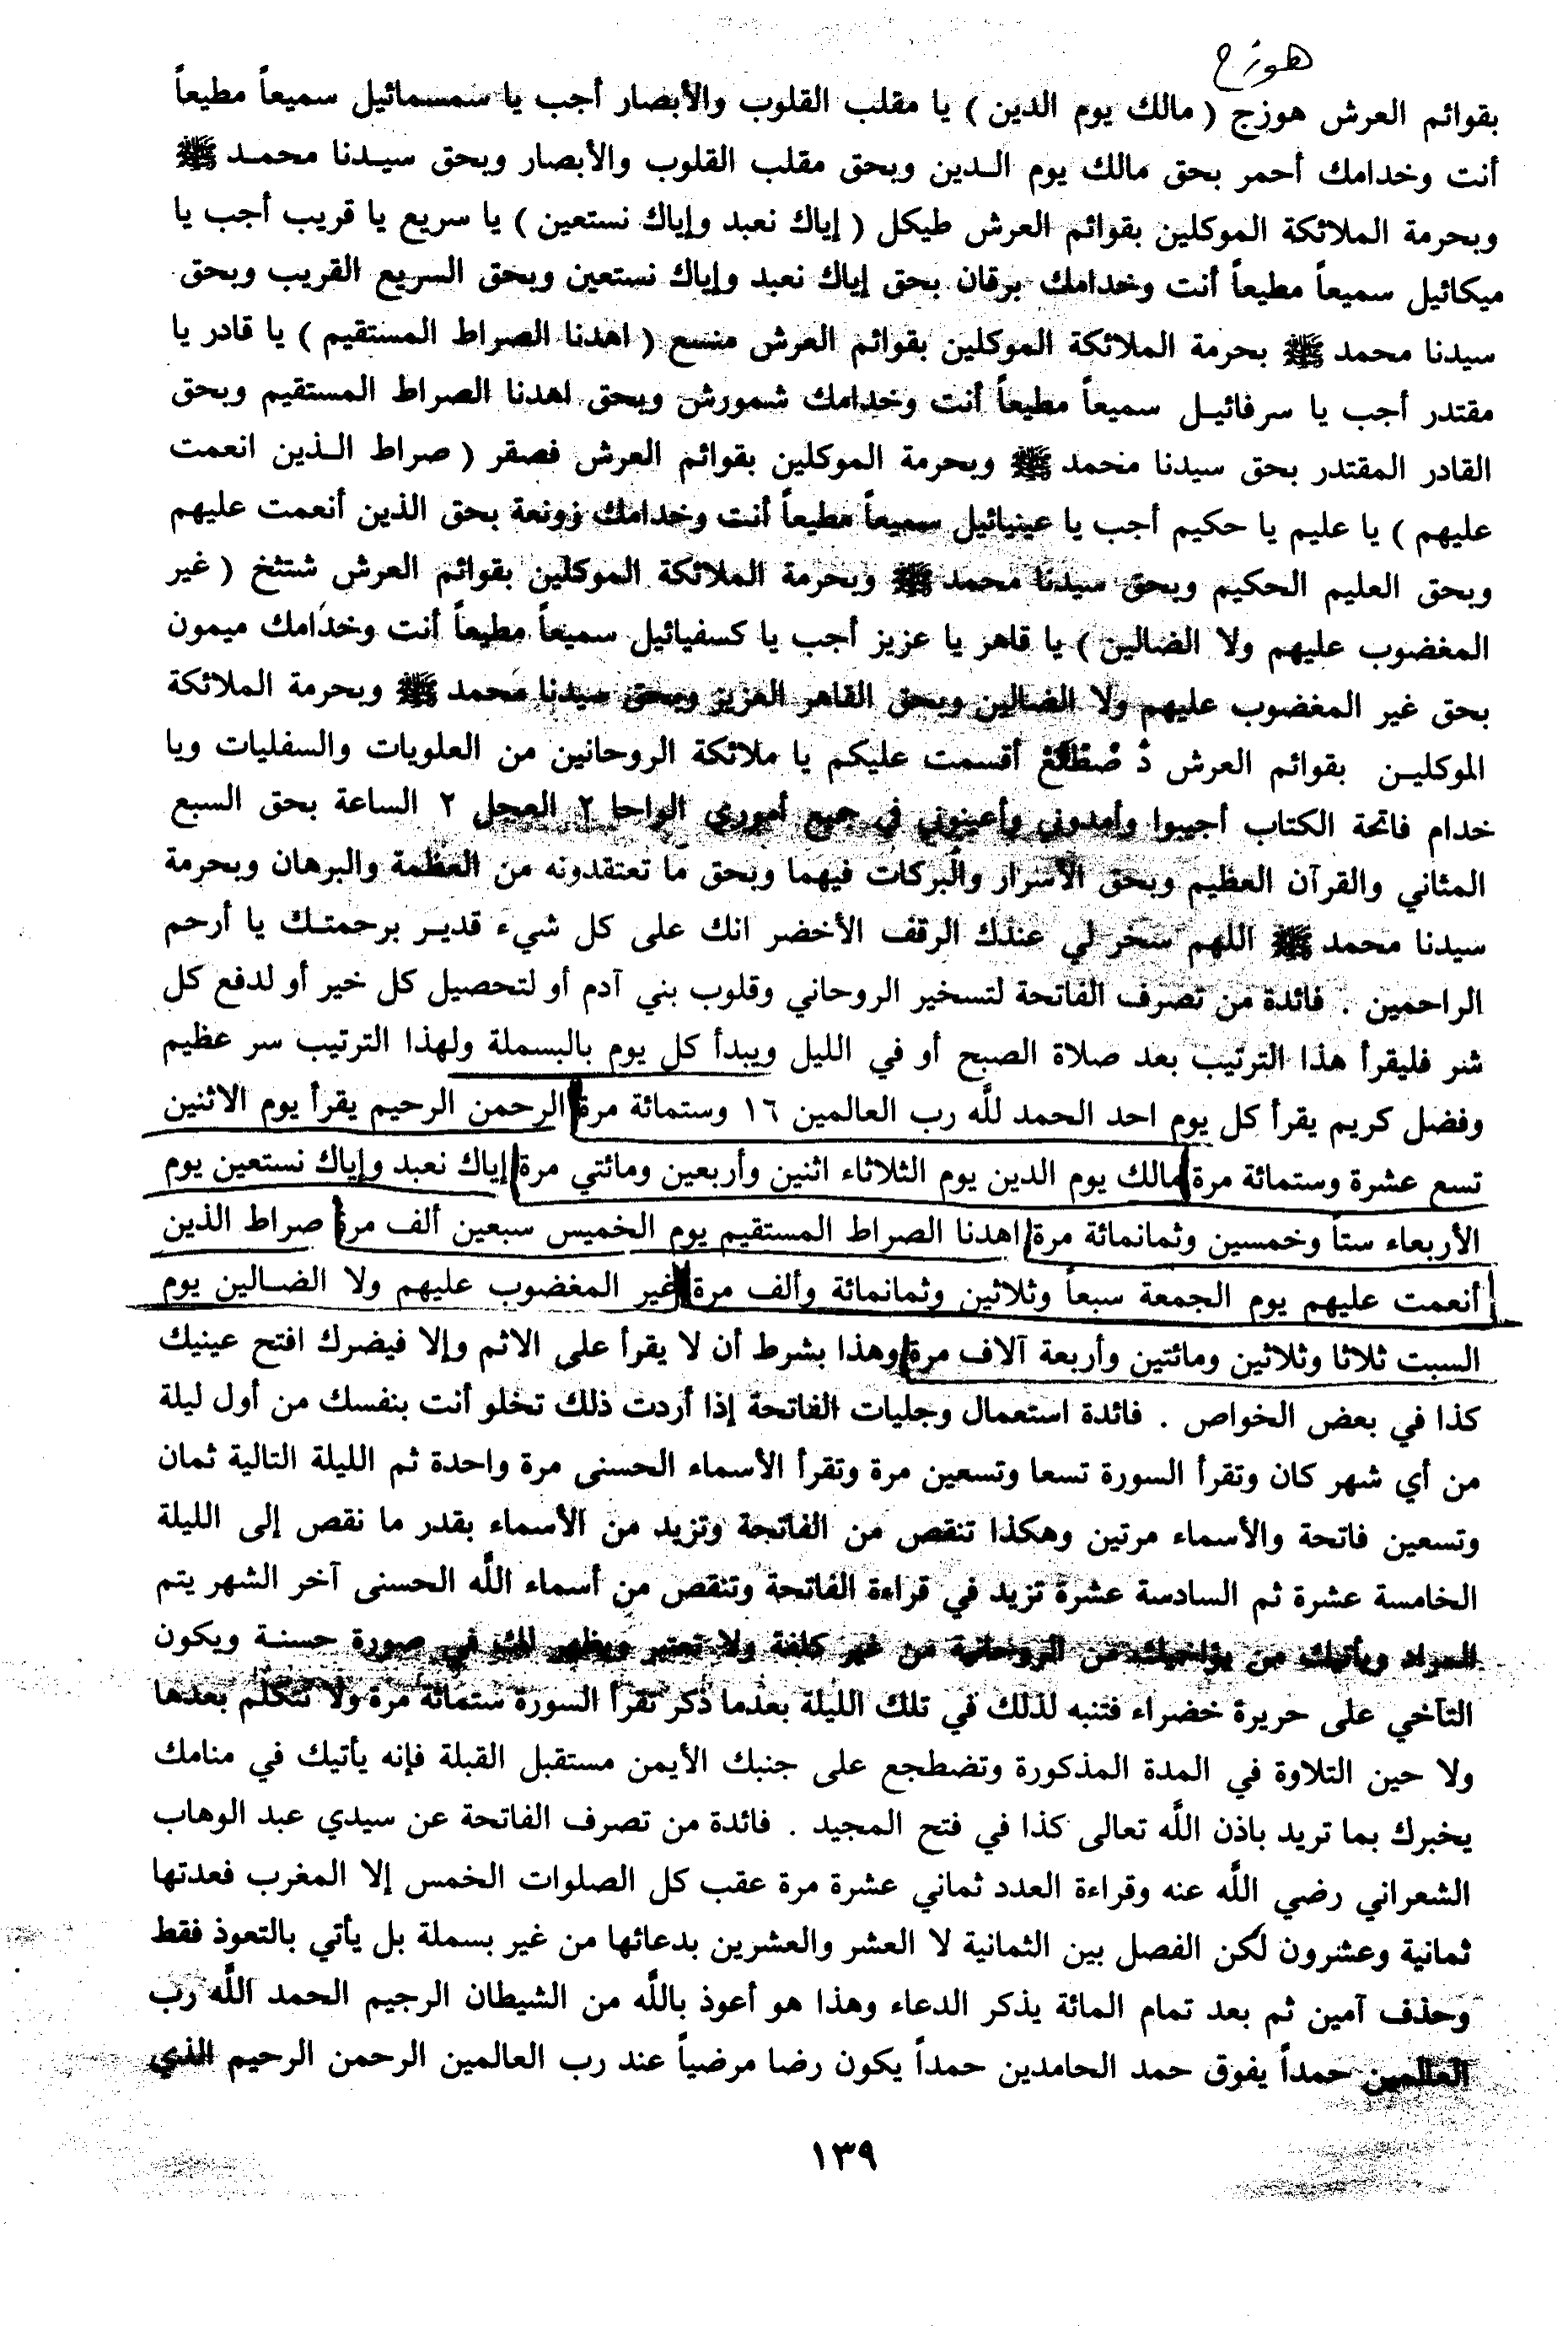 هوزج
بقوائم العرش هوزج ( مالك يوم الدين ) يا مقلب القلوب والأبصار أجب يا سمسمائيل سميعاً مطيعاً
أنت وخدامك أحمر بحق مالك يوم الـدين وبحق مقلب القلوب والأبصار وبحق سيـدنا محمـد ﷺ
وبحرمة الملائكة الموكلين بقوائم العرش طيكل ( إياك نعبد وإياك نستعين ) يا سريع يا قريب أجب يا
ميكائيل سميعاً مطيعاً أنت وخدامك برقان بحق إياك نعبد وإياك نستعين وبحق السريع القريب وبحق
سيدنا محمد ﷺ بحرمة الملائكة الموكلين بقوائم العرش منسع ( اهدنا الصراط المستقيم ) يا قادر يا
مقتدر أجب يا سرفائيـل سميعاً مطيعاً أنت وخدامك شمورش وبحق اهدنا الصراط المستقيم وبحق
القادر المقتدر بحق سيدنا محمد ﷺ وبحرمة الموكلين بقوائم العرش فصقر ( صراط الـذين انعمت
عليهم ) يا عليم يا حكيم أجب يا عينيائيل سميعاً مطيعاً أنت وخدامك زونعة بحق الذين أنعمت عليهم
وبحق العليم الحكيم وبحق سيدنا محمد ﷺ وبحرمة الملائكة الموكلين بقوائم العرش شتثخ ( غير
المغضوب عليهم ولا الضالين ) يا قاهر يا عزيز أجب يا كسفيائيل سميعاً مطيعاً أنت وخدامك ميمون
بحق غير المغضوب عليهم ولا الضالين وبحق القاهر العزيز وبحق سيدنا محمد ﷺ وبحرمة الملائكة
الموكليـن بقوائم العرش أقسمت عليكم يا ملائكة الروحانين من العلويات والسفليات ويا
خدام فاتحة الكتاب أجيبوا وأمدوني وأعينوني في جميع أموري الواحا ٢ العجل ٢ الساعة بحق السبع
المثاني والقرآن العظيم وبحق الأسرار والبركات فيهما وبحق ما تعتقدونه من العظمة والبرهان وبحرمة
سيدنا محمد ﷺ اللهم سخر لي عندك الرقف الأخضر انك على كل شيء قديـر برحمتـك يا أرحم
الراحمين . فائدة من تصرف الفاتحة لتسخير الروحاني وقلوب بني آدم أو لتحصيل كل خير أو لدفع كل
شر فليقرأ هذا الترتيب بعد صلاة الصبح أو في الليل ويبدأ كل يوم بالبسملة ولهذا الترتيب سر عظيم
وفضل كريم يقرأ كل يوم احد الحمد لله رب العالمين ١٦ وستمائة مرة الرحمن الرحيم يقرأ يوم الاثنين
تسع عشرة وستمائة مرة مالك يوم الدين يوم الثلاثاء اثنين وأربعين ومائتي مرة إياك نعبد وإياك نستعين يوم
الأربعاء ستاً وخمسين وثمانمائة مرة اهدنا الصراط المستقيم يوم الخميس سبعين ألف مرة صراط الذين
أنعمت عليهم يوم الجمعة سبعاً وثلاثين وثمانمائة وألف مرة غير المغضوب عليهم ولا الضـالين يوم
السبت ثلاثا وثلاثين ومائتين وأربعة آلاف مرة وهذا بشرط أن لا يقرأ على الاثم وإلا فيضرك افتح عينيك
كذا في بعض الخواص . فائدة استعمال وجليات الفاتحة إذا أردت ذلك تخلو أنت بنفسك من أول ليلة
من أي شهر كان وتقرأ السورة تسعا وتسعين مرة وتقرأ الأسماء الحسنى مرة واحدة ثم الليلة التالية ثمان
وتسعين فاتحة والأسماء مرتين وهكذا تنقص من الفاتحة وتزيد من الأسماء بقدر ما نقص إلى الليلة
الخامسة عشرة ثم السادسة عشرة تزيد في قراءة الفاتحة وتنقص من أسماء الله الحسنى آخر الشهر يتم
المراد ويأتيك من يؤاخيك من الروحانية من غير كلفة ولا تعتبر ويظهر لك في صورة حسنـة ويكون
التآخي على حريرة خضراء فتنبه لذلك في تلك الليلة بعدما ذكر تقرأ السورة ستمائة مرة ولا تتكلم بعدها
ولا حين التلاوة في المدة المذكورة وتضطجع على جنبك الأيمن مستقبل القبلة فإنه يأتيك في منامك
يخبرك بما تريد باذن الله تعالى كذا في فتح المجيد . فائدة من تصرف الفاتحة عن سيدي عبد الوهاب
الشعراني رضي الله عنه وقراءة العدد ثماني عشرة مرة عقب كل الصلوات الخمس إلا المغرب فعدتها
ثمانية وعشرون لكن الفصل بين الثمانية لا العشر والعشرين بدعائها من غير بسملة بل يأتي بالتعوذ فقط
وحذف آمين ثم بعد تمام المائة يذكر الدعاء وهذا هو أعوذ بالله من الشيطان الرجيم الحمد الله رب
العالمين حمداً يفوق حمد الحامدين حمداً يكون رضا مرضياً عند رب العالمين الرحمن الرحيم الذي
١٣٩